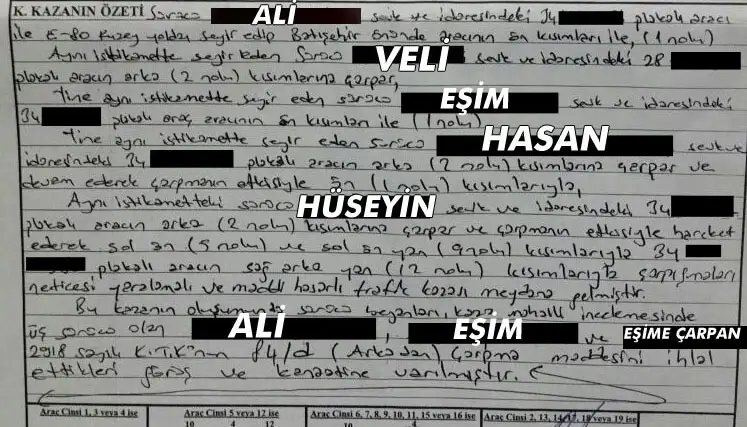 K. KAZANIN ÖZETİ Sürücü ALİ sevk ve idaresindeki 34 plakalı aracı
ile E-80 kuzey yoldan seyir edip Batışehir önünde aracının ön kısımları ile, (1 nolu)
Aynı istikamette seyir eden sürücü VELİ sevk ve idaresindeki 28
plakalı aracın arka (2 nolu) kısımlarına çarpar,
Yine aynı istikamette seyir eden sürücü EŞİM sevk ve idaresindeki
34 plakalı araç aracının ön kısımları ile (1 nolu)
Yine aynı istikamette seyir eden sürücü HASAN sevk ve
idaresindeki 34 plakalı aracın arka (2 nolu) kısımlarına çarpar ve
devam ederek çarpmanın etkisiyle ön (1 nolu) kısımlarıyla,
Aynı istikametteki sürücü HÜSEYİN sevk ve idaresindeki 34
plakalı aracın arka (2 nolu) kısımlarına çarpar ve çarpmanın etkisiyle hareket
ederek sol ön (5 nolu) ve sol ön yan (9 nolu) kısımlarıyla 34
plakalı aracın sağ arka yan (12 nolu) kısımlarıyla çarpışmaları
neticesi yaralamalı ve maddi hasarlı trafik kazası meydana gelmiştir.
Bu kazanın oluşumunda sürücü beyanları, kaza mahalli incelemesinde
üç sürücü olan ALİ , EŞİM ve EŞİME ÇARPAN
2918 sayılı K.T.K'nun 84/d (Arkadan) çarpma maddesini ihlal
ettikleri görüş ve kanaatine varılmıştır.
Araç Cinsi 1, 3 veya 4 ise Araç Cinsi 5 veya 12 ise Araç Cinsi 6, 7, 8, 9, 10, 11, 15 veya 16 ise Araç Cinsi 2, 13, 14, 17, 18 veya 19 ise
10 4 12 10 4